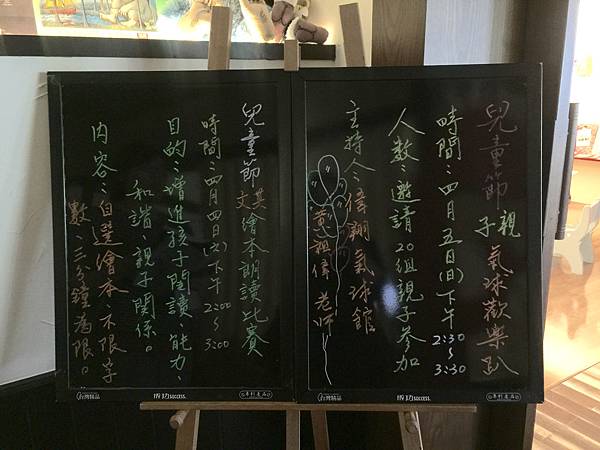 兒童節 親子 氣球歡樂趴
時間：四月五日(日)下午2:30~3:30
人數：邀請20組親子參加
主持人：偉翔氣球館
老師
兒童節 英文繪本朗讀比賽
時間：四月四日(六)下午2:00~3:00
目的：增進孩子閱讀、能力、
和諧、親子關係。
內容：自選繪本、不限字
數、三分鐘為限。
台灣精品
成功 success.
專利產品
台灣精品
成功 success.
專利產品